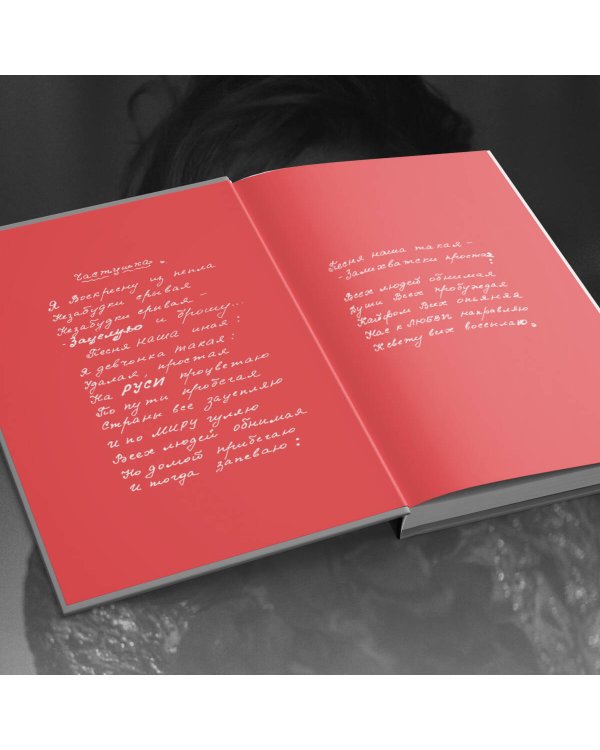 Частушка.
Я Воскресну из пепла
Незабудки срывая
Незабудки срывая –
-Зацелую и брошу...
Песня наша иная:
Я девчонка такая:
Удалая, простая
На РУСИ процветаю
По пути пробегая
Страны все зацепляю
И по МИРУ гуляю
Всех людей обнимая
Но домой прибегаю
И тогда запеваю:
Песня наша такая –
-Залихватски простая:
Всех людей обнимая
Души Всех пробуждая
Кайфом Всех опьяняя
Нас к Любви направляю
К свету всех воссылаю.